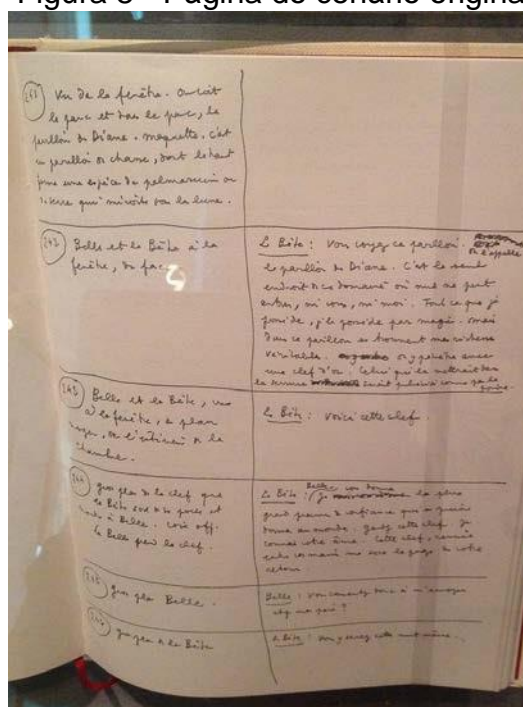 Figura 3 - Página do cenário origina
Vu de la fenêtre. On voit
le parc et dans le parc, le
pavillon de Diane. maquette. C'est
un pavillon de chasse, dont le haut
forme une espèce de
serre qui miroite sous la lune.
242
Belle et la Bête à la
fenêtre, de face
La Bête : Vous voyez ce pavillon
on l'appelle
le pavillon de Diane. C'est le seul
endroit de ce domaine où nul ne peut
entrer, ni vous, ni moi. Tout ce que je
possède, je le possède par magie. mais
dans ce pavillon se trouvent mes richesses
véritables. on y pénètre avec
une clef d'or. Celui qui la mettrait dans
la serrure serait
243
Belle et la Bête, vus
à la fenêtre, en plan
moyen, de l'intérieur de la
chambre.
La Bête : voici cette clef.
244
gros plan de la clef que
la Bête sort de sa poche et
montre à Belle. voix off.
La Belle prend la clef.
La Bête : Belle, je vous donne la plus
grande preuve de confiance qui se puisse
donner au monde. Gardez cette clef. Je
connais votre âme. Cette clef,
entre vos mains me sera le gage de votre
retour.
245
gros plan Belle.
Belle : Vous consentez donc à m'envoyer
chez mon père ?
246
gros plan de la Bête
La Bête : Vous y serez cette nuit même.